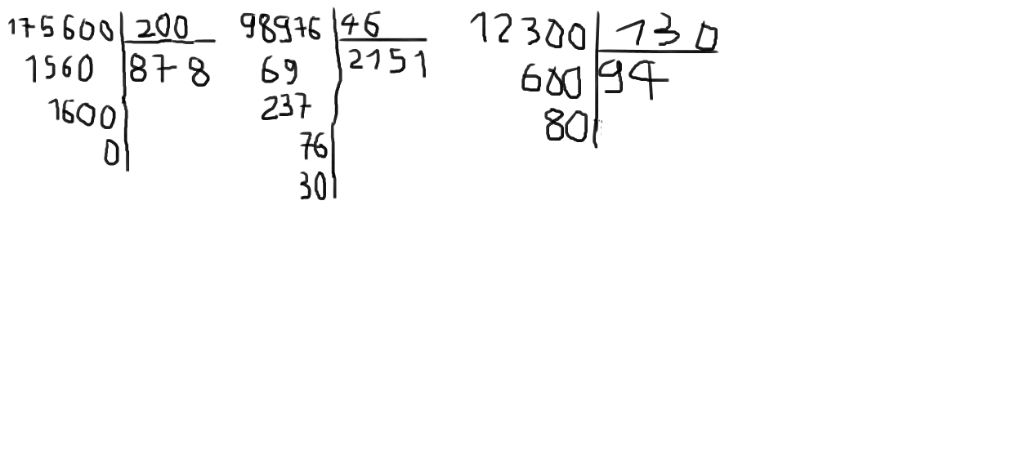 175600 200 98976 46 12300 130
1560 878 69 2151 600 94
1600 237 80
0 76
30